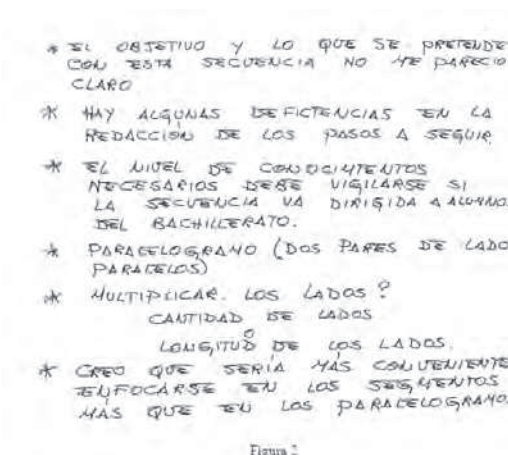 * EL OBJETIVO Y LO QUE SE PRETENDE
CON ESTA SECUENCIA NO ME PARECIO
CLARO
* HAY ALGUNAS DEFICIENCIAS EN LA
REDACCIÓN DE LOS PASOS A SEGUIR
* EL NIVEL DE CONOCIMIENTOS
NECESARIOS DEBE VIGILARSE SI
LA SECUENCIA VA DIRIGIDA A ALUMNO
DEL BACHILLERATO.
* PARALELOGRAMO (DOS PARES DE LADO
PARALELOS)
* MULTIPLICAR. LOS LADOS?
CANTIDAD DE LADOS
O
LONGITUD DE LOS LADOS.
* CREO QUE SERÍA MÁS CONVENIENTE
ENFOCARSE EN LOS SEGMENTOS
MÁS QUE EN LOS PARALELOGRAMO
Figura 2